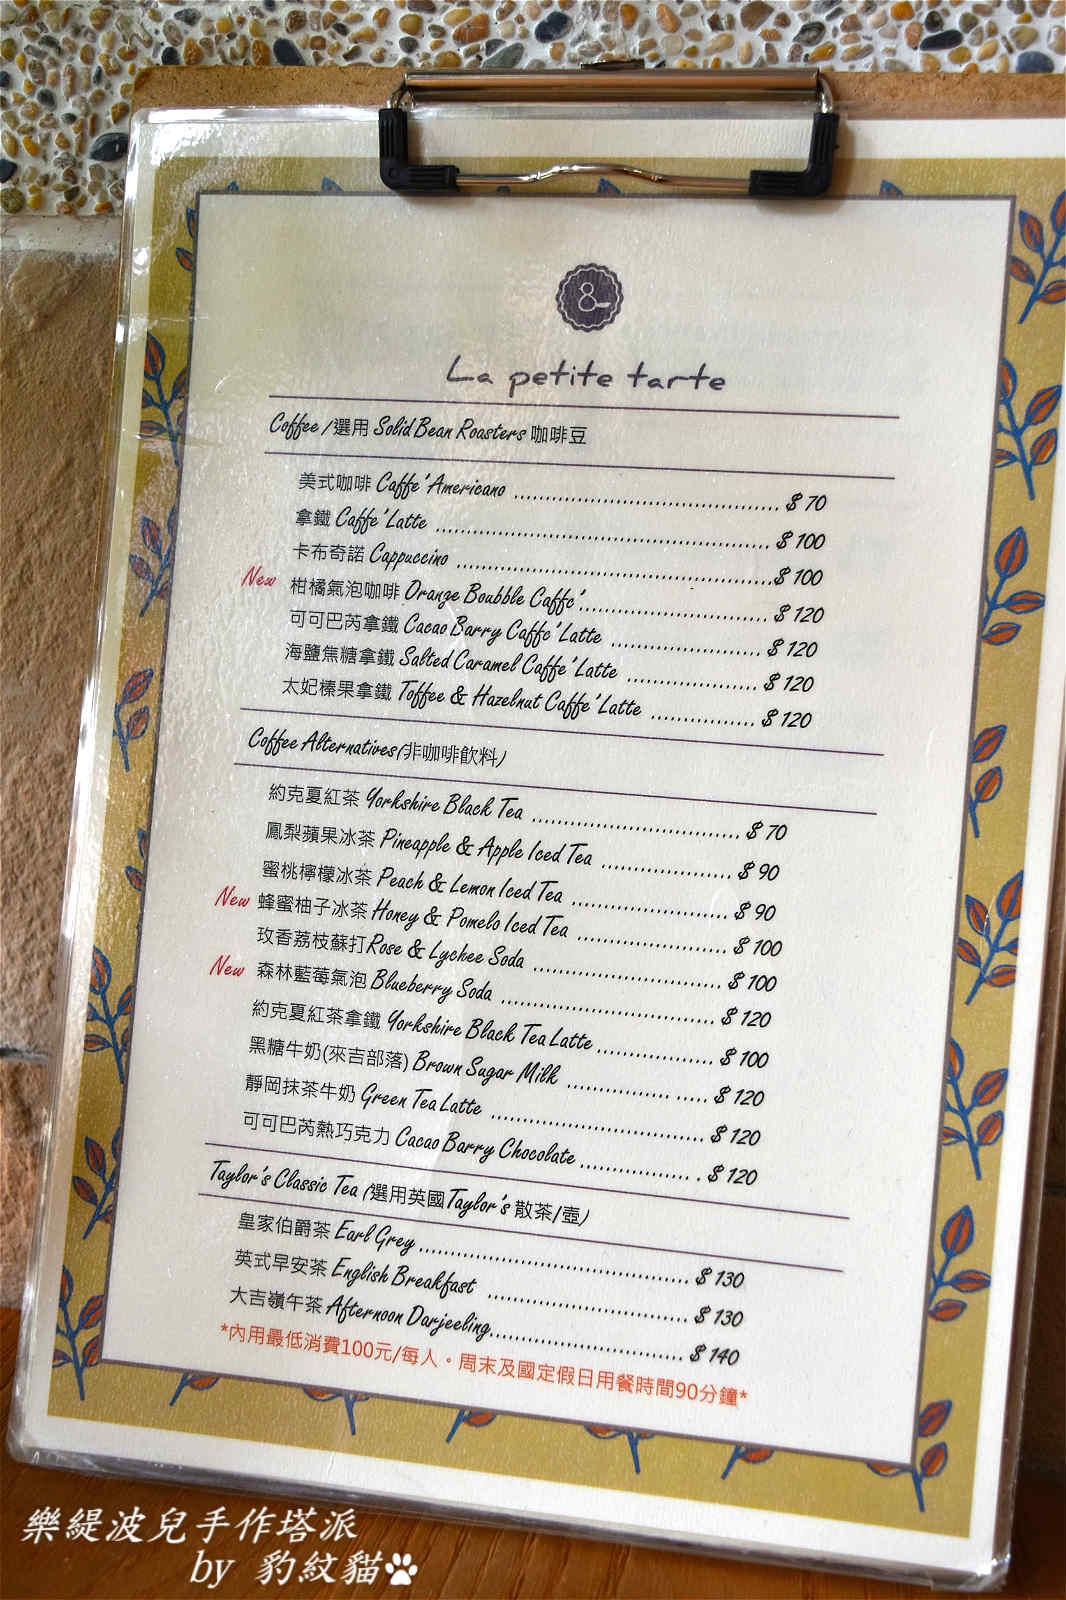 La petite tarte
Coffee /選用 Solid Bean Roasters 咖啡豆
美式咖啡 Caffe' Americano ........ $ 70
拿鐵 Caffe' Latte ........ $ 100
卡布奇諾 Cappuccino ........ $ 100
New 柑橘氣泡咖啡 Orange Boubble Caffe' ........ $ 120
可可巴芮拿鐵 Cacao Barry Caffe' Latte ........ $ 120
海鹽焦糖拿鐵 Salted Caramel Caffe' Latte ........ $ 120
太妃榛果拿鐵 Toffee & Hazelnut Caffe' Latte ........ $ 120
Coffee Alternatives(非咖啡飲料)
約克夏紅茶 Yorkshire Black Tea ........ $ 70
鳳梨蘋果冰茶 Pineapple & Apple Iced Tea ........ $ 90
蜜桃檸檬冰茶 Peach & Lemon Iced Tea ........ $ 90
New 蜂蜜柚子冰茶 Honey & Pomelo Iced Tea ........ $ 100
玫香荔枝蘇打 Rose & Lychee Soda ........ $ 100
New 森林藍莓氣泡 Blueberry Soda ........ $ 120
約克夏紅茶拿鐵 Yorkshire Black Tea Latte ........ $ 100
黑糖牛奶(來吉部落) Brown Sugar Milk ........ $ 120
靜岡抹茶牛奶 Green Tea Latte ........ $ 120
可可巴芮熱巧克力 Cacao Barry Chocolate ........ $ 120
Taylor's Classic Tea (選用英國Taylor's 散茶/壺)
皇家伯爵茶 Earl Grey ........ $ 130
英式早安茶 English Breakfast ........ $ 130
大吉嶺午茶 Afternoon Darjeeling ........ $ 140
*內用最低消費100元/每人。周末及國定假日用餐時間90分鐘*
樂緹波兒手作塔派
by 豹紋貓